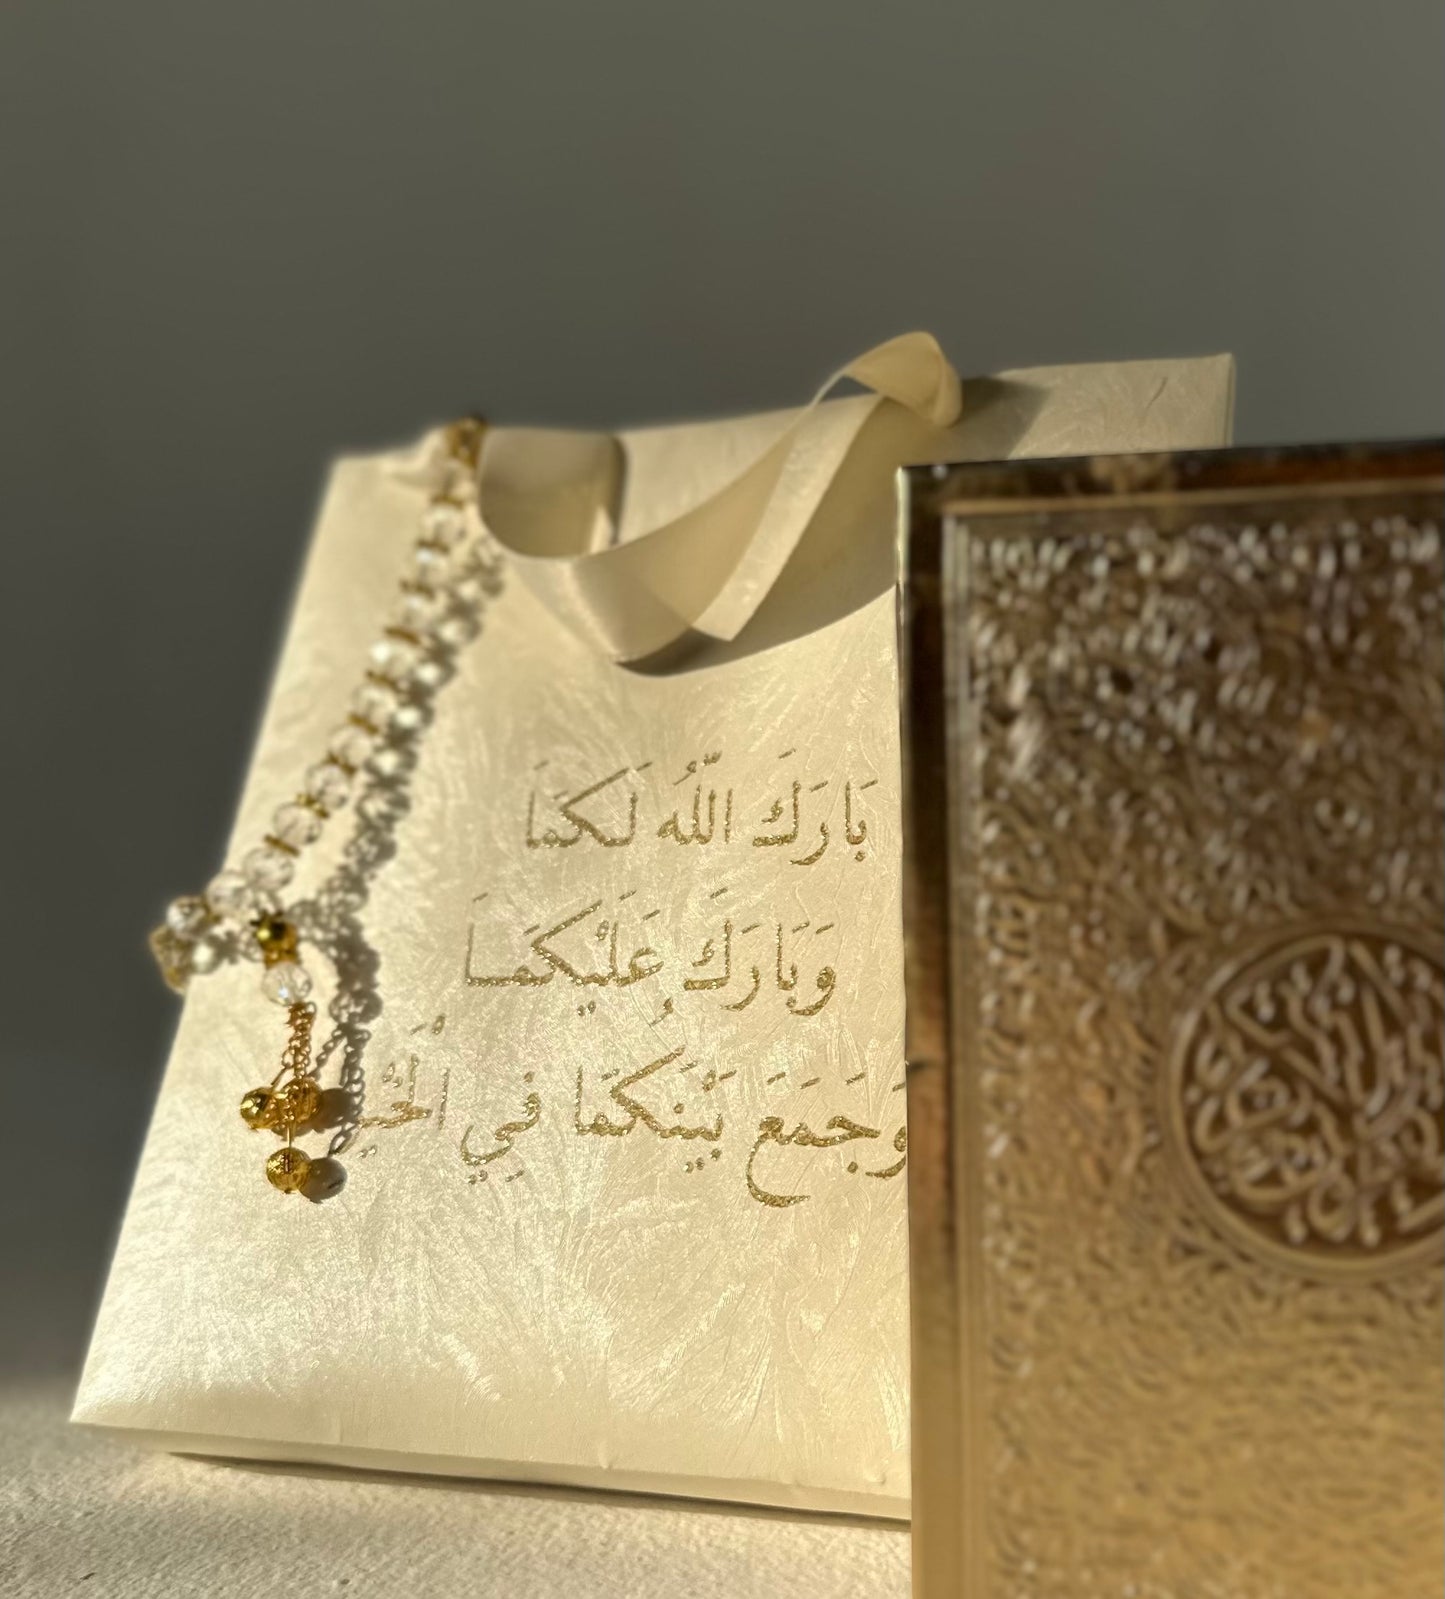 بَارَكَ اللّٰهُ لَكُمَا
وَبَارَكَ عَلَيْكُمَا
وَجَمَعَ بَيْنَكُمَا فِي الْخَيْ